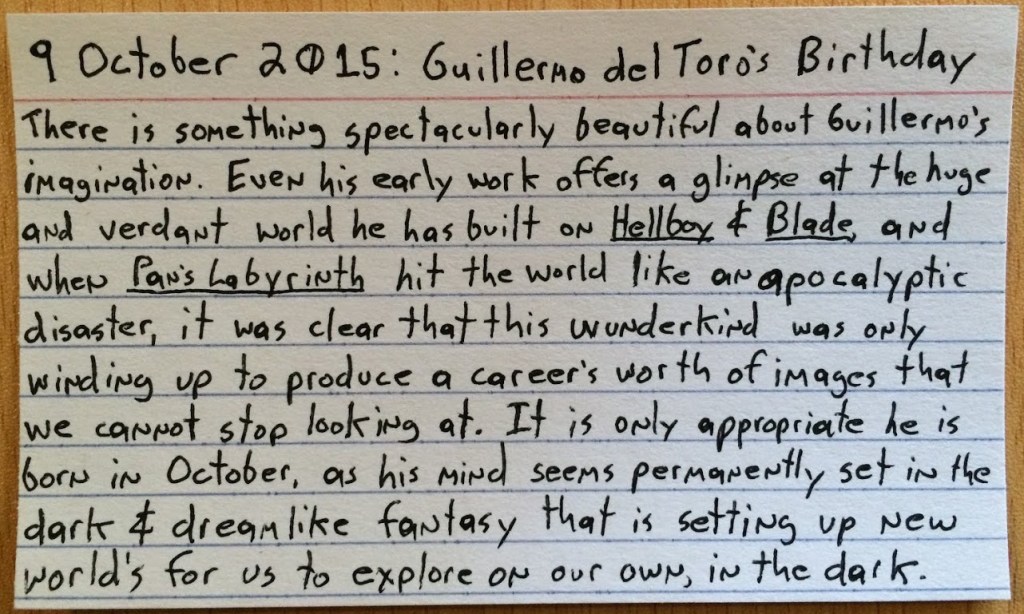 9 October 2015: Guillermo del Toro's Birthday
There is something spectacularly beautiful about Guillermo's
imagination. Even his early work offers a glimpse at the huge
and verdant world he has built on Hellboy & Blade, and
when Pan's Labyrinth hit the world like an apocalyptic
disaster, it was clear that this wunderkind was only
winding up to produce a career's worth of images that
we cannot stop looking at. It is only appropriate he is
born in October, as his mind seems permanently set in the
dark & dreamlike fantasy that is setting up new
world's for us to explore on our own, in the dark.